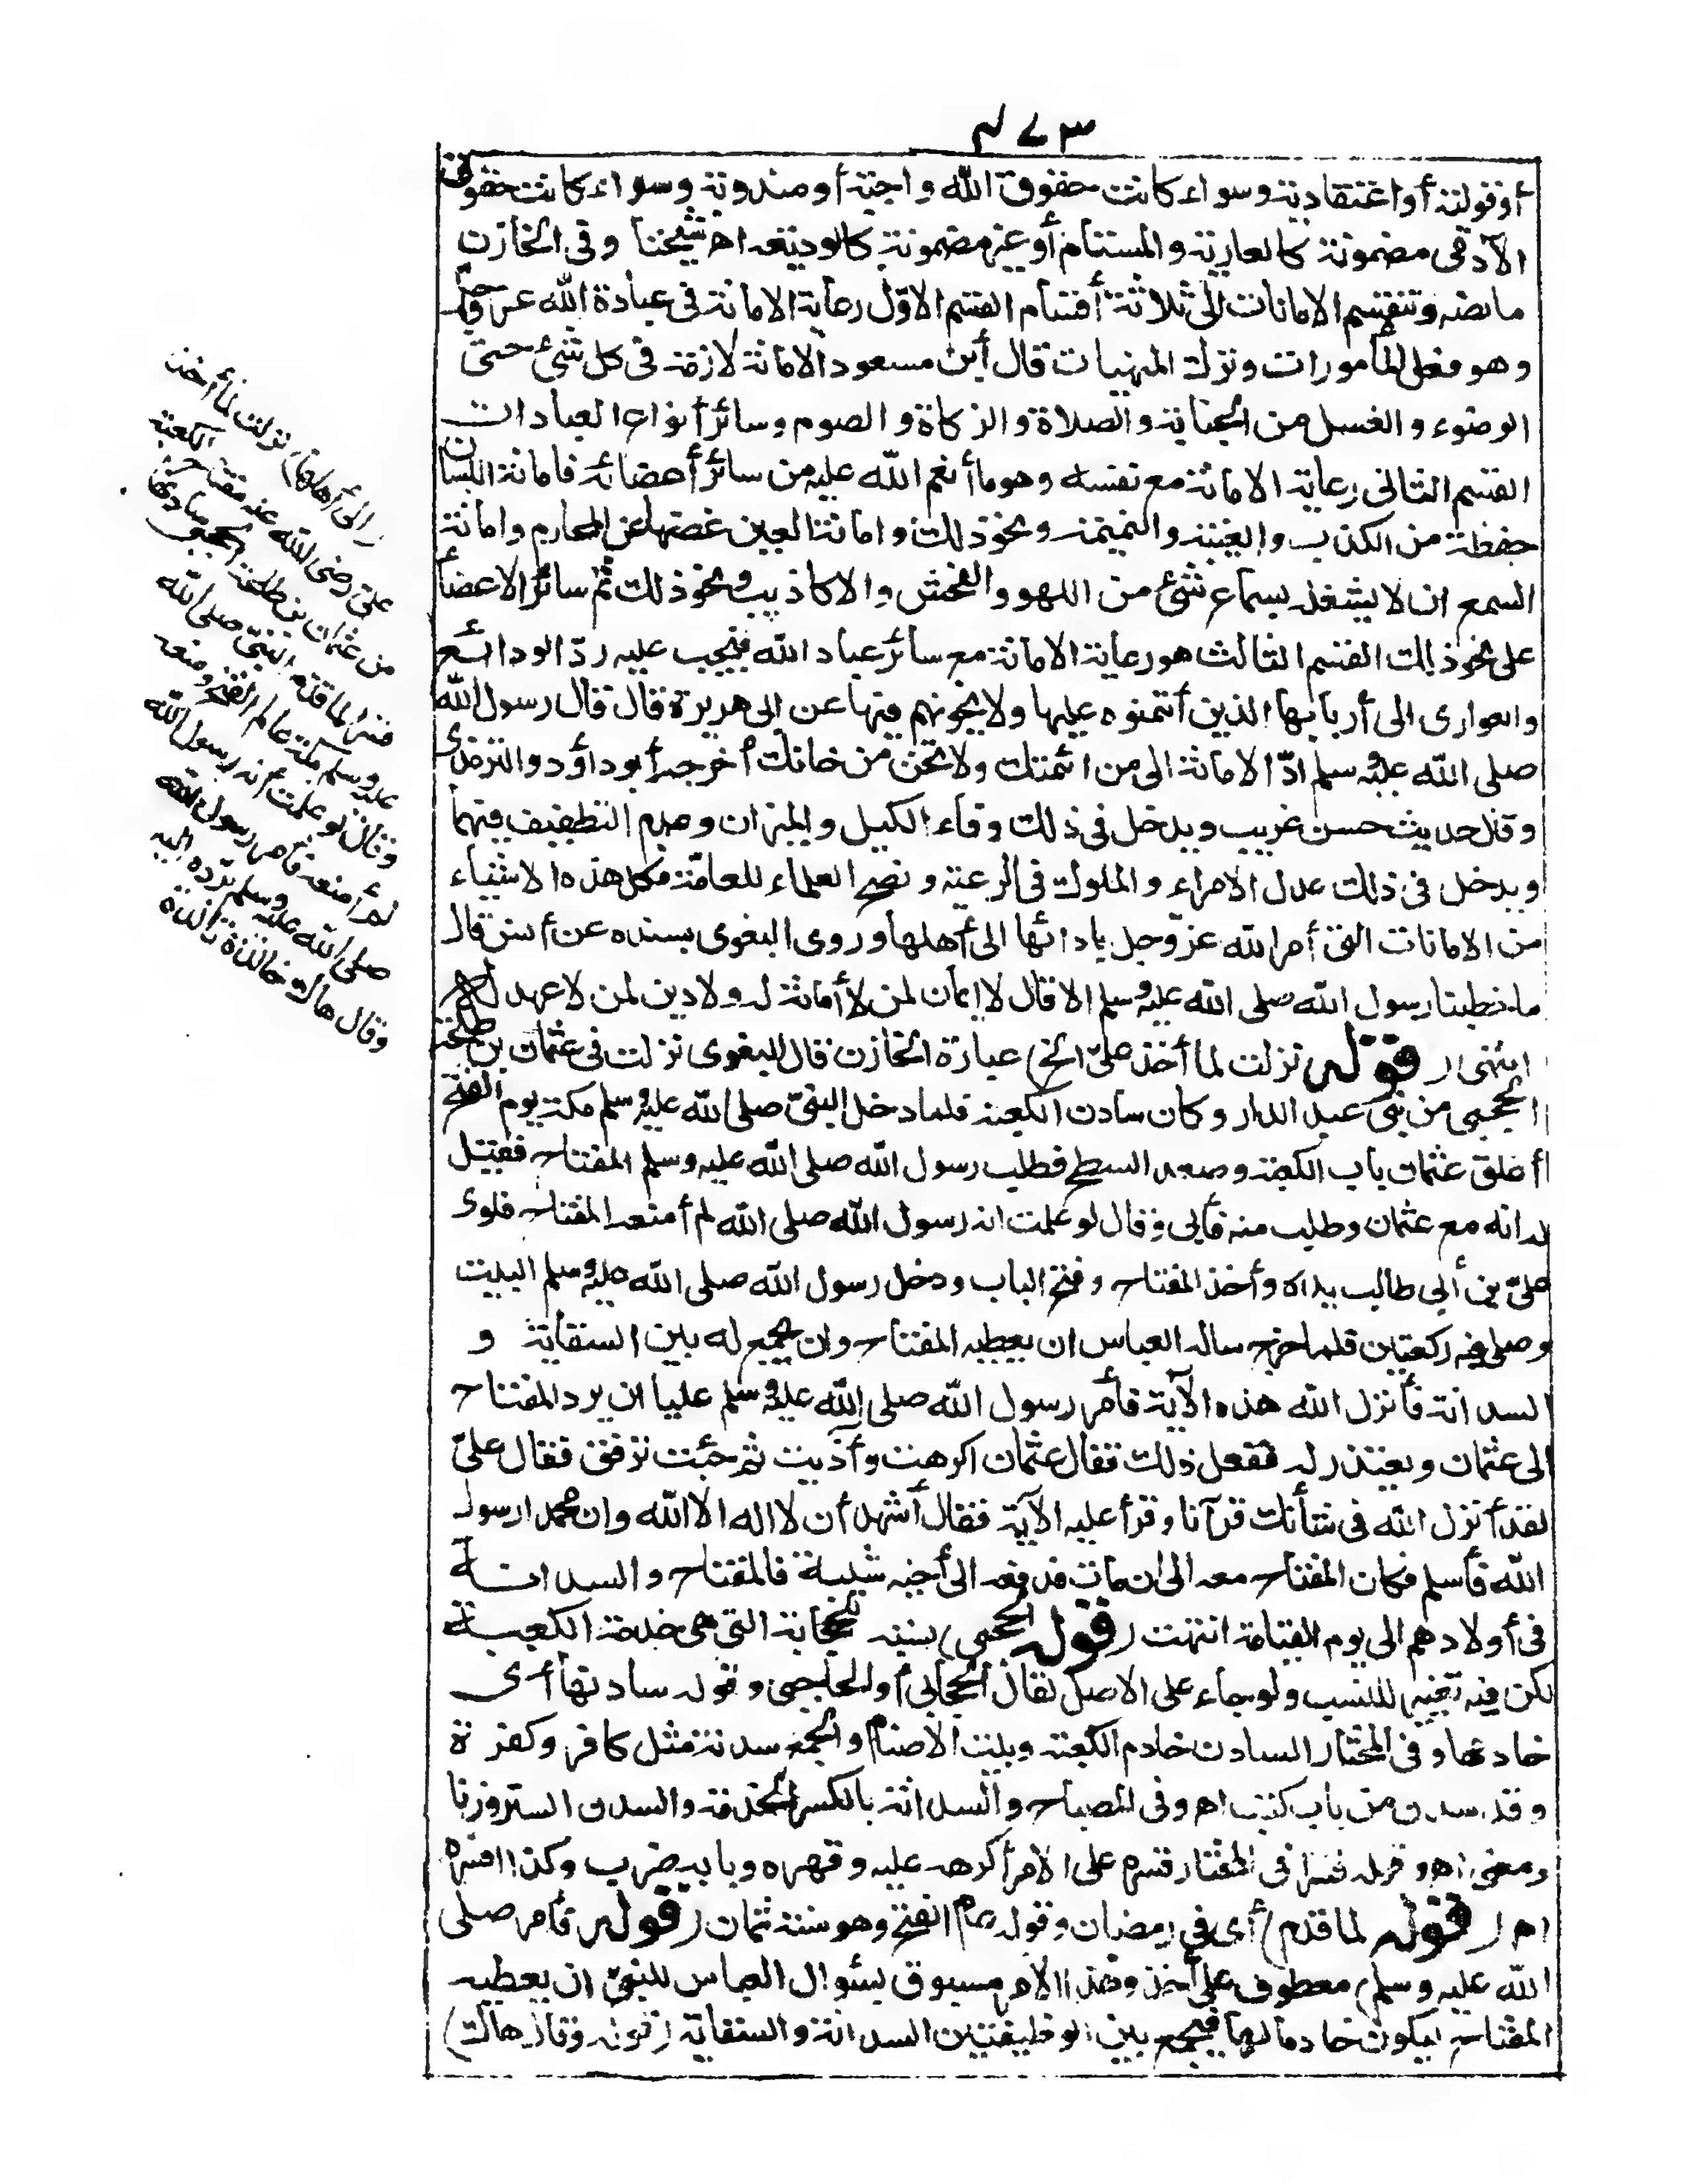 ٤٧٣
أو قولية أو اعتقادية وسواء كانت حقوق الله واجبة أو مندوبة وسواء كانت حقوق
الآدمى مضمونة كالعارية والمستام أو غير مضمونة كالوديعة اه شيخنا وفى الخازن
ما نصه وتنقسم الامانات إلى ثلاثة أقسام القسم الاوّل رعاية الامانة فى عبادة الله عز وجل
وهو فعل المأمورات وترك المنهيات قال ابن مسعود الامانة لازمة فى كل شئ حتى
الوضوء والغسل من الجنابة والصلاة والزكاة والصوم وسائر أنواع العبادات
القسم الثانى رعاية الامانة مع نفسه وهو ما أنعم الله عليه من سائر أعضائه فأمانة اللسان
حفظه من الكذب والغيبة والنميمة ونحو ذلك وامانة العين غضها عن المحارم وامانة
السمع ان لا يشغله بسماع شئ من اللهو والفحش والاكاذيب ونحو ذلك ثم سائر الاعضأ
على نحو ذلك القسم الثالث هو رعاية الامانة مع سائر عباد الله فيجب عليه ردّ الودائع
والعوارى الى أربابها الذين أئتمنوه عليها ولا يخونهم فيها عن ابى هريرة قال قال رسول الله
صلى الله عليه وسلم ادّ الامانة الى من ائتمنك ولا تخن من خانك أخرجه أبو داؤد والترمذى
وقال حديث حسن غريب ويدخل فى ذلك وفاء الكيل والميزان وعدم التطفيف فيهما
ويدخل فى ذلك عدل الامراء والملوك فى الرعية ونصح العلماء للعامّة فكل هذه الاشياء
من الامانات التى أمر الله عز وجل بادائها الى أهلها وروى البغوى بسنده عن أنس قال
ما خطبنا رسول الله صلى الله عليه وسلم الا قال لا ايمان لمن لا أمانة له ولا دين لمن لا عهد له اه
انتهى (قوله نزلت لما أخذ علىّ الخ) عبارة الخازن قال البغوى نزلت فى عثمان بن طلحة
الحجبى من بنى عبد الدار وكان سادن الكعبة فلما دخل النبىّ صلى الله عليه وسلم مكة يوم الفتح
أغلق عثمان باب الكعبة وصعد السطح فطلب رسول الله صلى الله عليه وسلم المفتاح فقيل
له انه مع عثمان وطلب منه فأبى وقال لو علمت انه رسول الله صلى الله لم أمنعه المفتاح فلوى
علىّ بن أبى طالب يداه وأخذ المفتاح وفتح الباب ودخل رسول الله صلى الله عليه وسلم البيت
وصلى فيه ركعتين فلما خرج ساله العباس ان يعطيه المفتاح وان يجمع له بين السقاية و
السدانة فأنزل الله هذه الآية فأمر رسول الله صلى الله عليه وسلم عليا ان يرد المفتاح
الى عثمان ويعتذر له ففعل ذلك فقال عثمان اكرهت وآذيت ثم جئت ترفق فقال علىّ
لقد أنزل الله فى شأنك قرآنا وقرأ عليه الآية فقال أشهد أن لا اله الا الله وان محمدا رسول
الله فأسلم فكان المفتاح معه الى ان مات فدفعه الى أخيه شيبة فالمفتاح والسدانة
فى أولادهم الى يوم القيامة انتهت (قوله الحجبى) نسبة للحجابة التى هى خدمة الكعبة
لكن فيه تغيير للنسب ولو جاء على الاصل لقال الحجابى أو الحاجبى وقوله سادنها أى
خادمها وفى المختار السادن خادم الكعبة وبيت الاصنام والجمع سدنة مثل كافر وكفرة
وقد سدن من باب كتب اه وفى المصباح والسدانة بالكسر الخدمة والسدن الستر وزنا
ومعنى اه وقوله قسرا فى المختار قسره على الامر أكرهه عليه وقهره وبابه ضرب وكذا اقتسره
اه (قوله لما قدم) أى فى رمضان وقوله عام الفتح وهو سنة ثمان (قوله فأمر صلى
الله عليه وسلم) معطوف على أخذ وهذا الامر مسبوق بسئوال العباس للنبىّ ان يعطيه
المفتاح ليكون خادما لها فيجمع بين الوظيفتين السدانة والسقاية (قوله وقال هاك)
الى أهلها) نزلت لما أخذ
علىّ رضى الله عنه مفتاح الكعبة
من عثمان بن طلحة الحجبى سادنها
قسرا لما قدم النبىّ صلى الله
عليه وسلم مكة عام الفتح ومنعه
وقال لو علمت أنه رسول الله
لم أمنعه فأمر رسول الله
صلى الله عليه وسلم بردّه اليه
وقال هاك خالدة تالدة